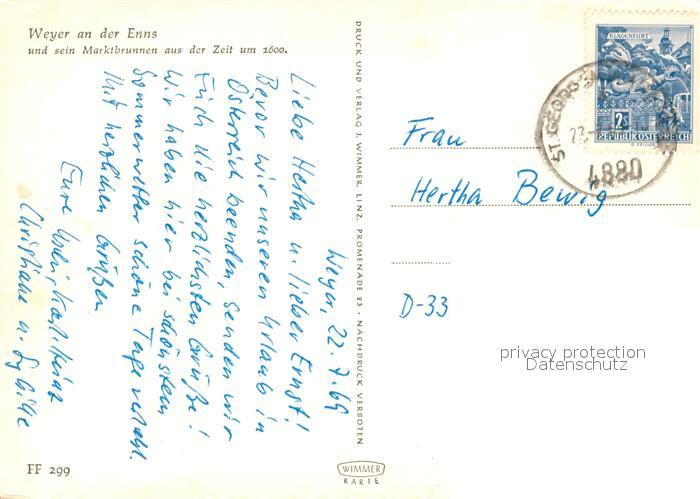 Weyer an der Enns
und sein Marktbrunnen aus der Zeit um 1600.
Weyer, 22.7.69
Liebe Hertha u. lieber Ernst!
Bevor wir unseren Urlaub in
Österreich beenden, senden wir
Euch die herzlichsten Grüße!
Wir haben hier bei schönstem
Sommerwetter schöne Tage verlebt.
Mit herzlichen Grüßen
Eure Karl-Heinz
Christiane u. Sybille
FF 299
DRUCK UND VERLAG J. WIMMER, LINZ, PROMENADE 23 · NACHDRUCK VERBOTEN
WIMMER
KARTE
KLAGENFURT
2S
REPUBLIK ÖSTERREICH
ST. GEORG
4880
Frau
Hertha Bewig
D-33
privacy protection
Datenschutz